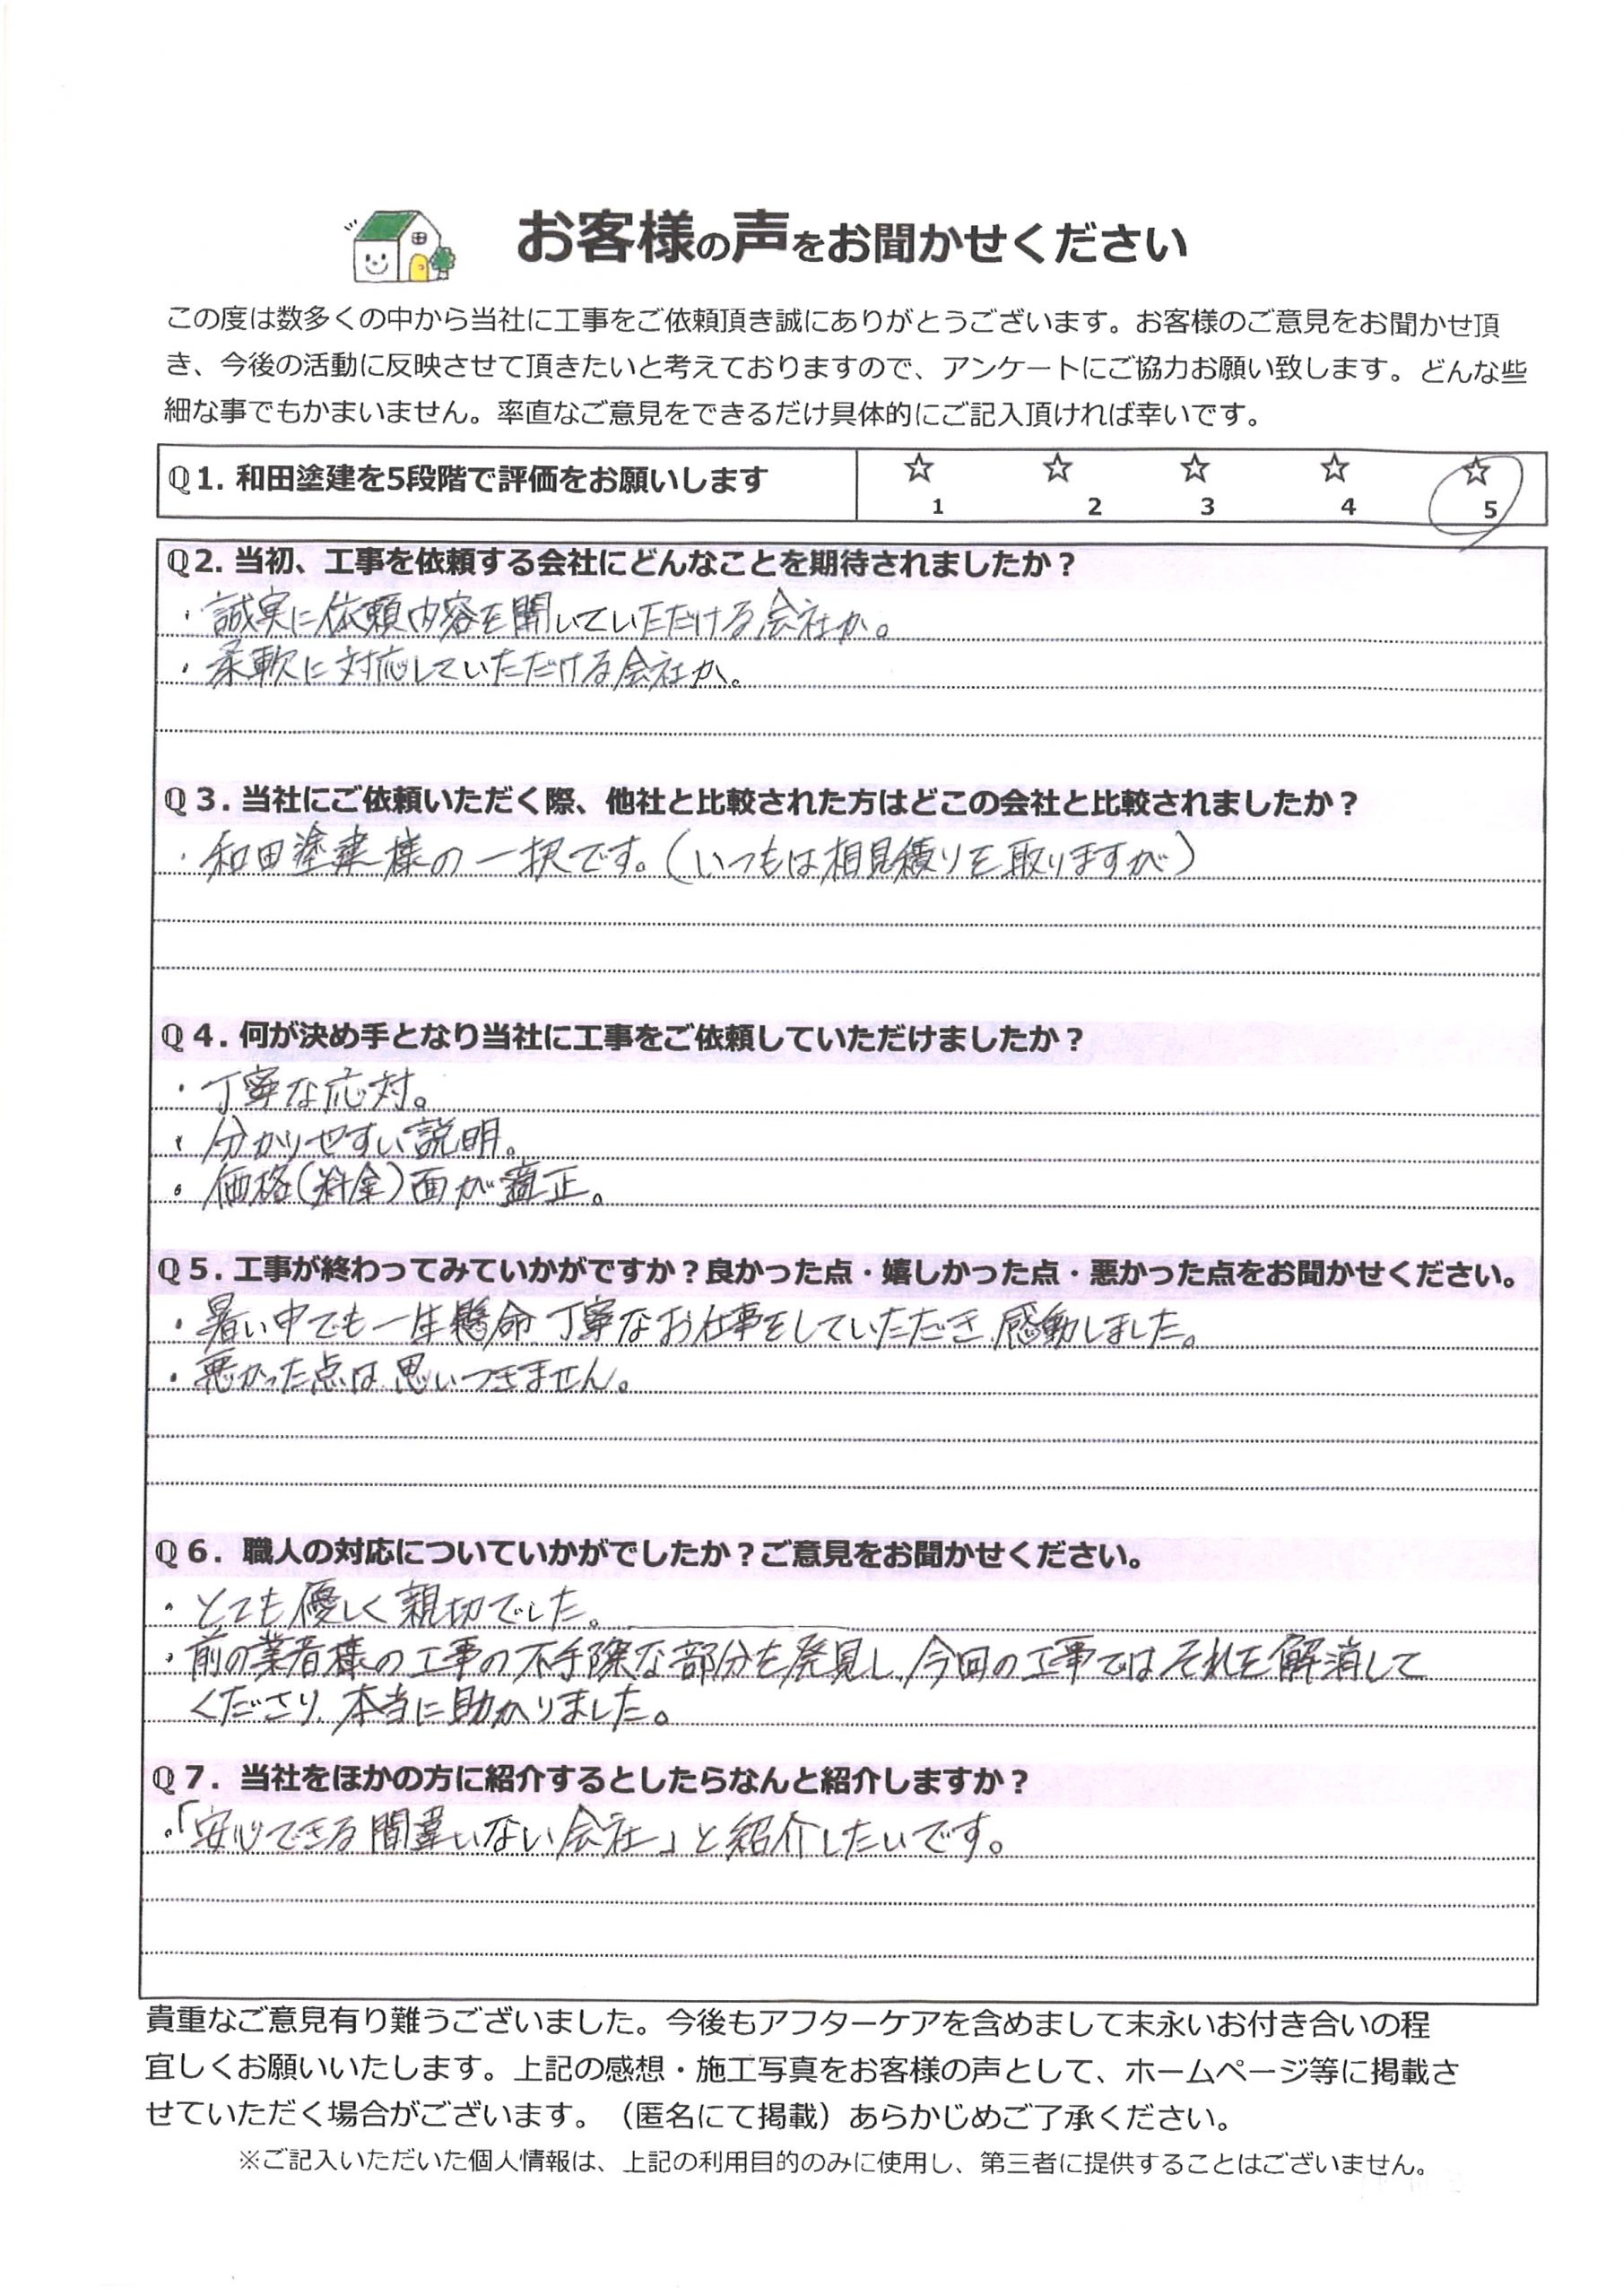 お客様の声をお聞かせください
この度は数多くの中から当社に工事をご依頼頂き誠にありがとうございます。お客様のご意見をお聞かせ頂
き、今後の活動に反映させて頂きたいと考えておりますので、アンケートにご協力お願い致します。どんな些
細な事でもかまいません。率直なご意見をできるだけ具体的にご記入頂ければ幸いです。
Q1. 和田塗建を5段階で評価をお願いします
☆ ☆ ☆ ☆ ☆
1 2 3 4 5
Q2. 当初、工事を依頼する会社にどんなことを期待されましたか？
・誠実に依頼内容を聞いていただける会社か。
・柔軟に対応していただける会社か。
Q3. 当社にご依頼いただく際、他社と比較された方はどこの会社と比較されましたか？
・和田塗建様の一択です。(いつもは相見積りを取りますが)
Q4. 何が決め手となり当社に工事をご依頼していただけましたか？
・丁寧な応対。
・分かりやすい説明。
・価格(料金)面が適正。
Q5. 工事が終わってみていかがですか？良かった点・嬉しかった点・悪かった点をお聞かせください。
・暑い中でも一生懸命、丁寧なお仕事をしていただき、感動しました。
・悪かった点は思いつきません。
Q6. 職人の対応についていかがでしたか？ご意見をお聞かせください。
・とても優しく親切でした。
・前の業者様の工事の不手際な部分を発見し、今回の工事ではそれを解消して
くださり、本当に助かりました。
Q7. 当社をほかの方に紹介するとしたらなんと紹介しますか？
・「安心できる間違いない会社」と紹介したいです。
貴重なご意見有り難うございました。今後もアフターケアを含めまして末永いお付き合いの程
宜しくお願いいたします。上記の感想・施工写真をお客様の声として、ホームページ等に掲載さ
せていただく場合がございます。（匿名にて掲載）あらかじめご了承ください。
※ご記入いただいた個人情報は、上記の利用目的のみに使用し、第三者に提供することはございません。